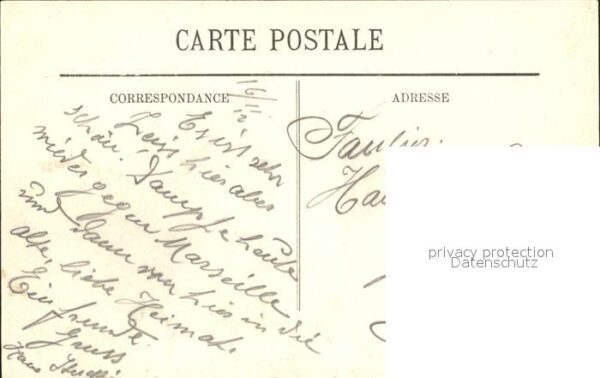 CARTE POSTALE
CORRESPONDANCE
ADRESSE
16/11 12
Es ist sehr
heiss hier aber
schön. Dampfe heute
wieder gegen Marseille
und dann von hier in die
alte, liebe Heimat.
Ein freundl.
Gruss
Hans
privacy protection
Datenschutz